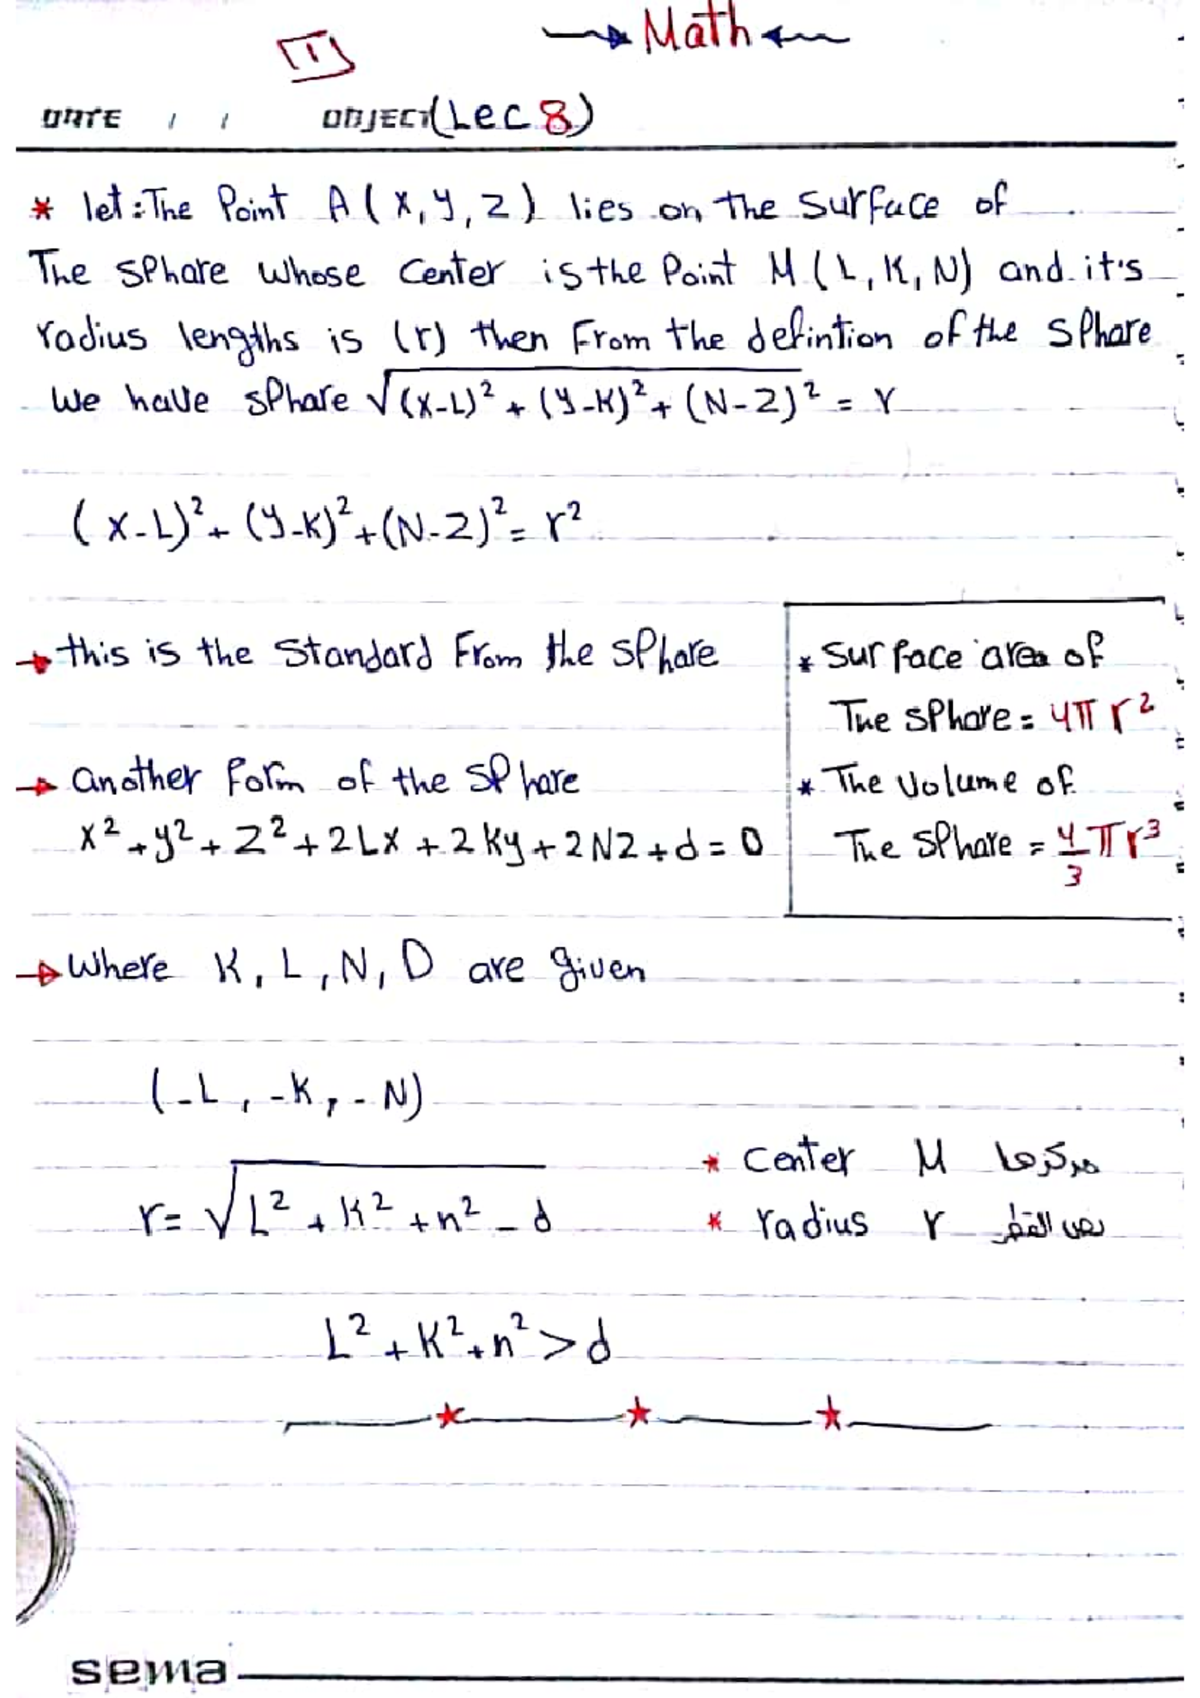 [1]
Math
DATE / / OBJECT (Lec 8)
* let: The Point A (X, Y, Z) lies on the Surface of
The sphare whose Center is the Point M (L, K, N) and it's
radius lengths is (r) then From the defintion of the sphare
we have sphare √(X-L)² + (Y-K)² + (N-Z)² = r
(X-L)² + (Y-K)² + (N-Z)² = r²
→ this is the Standard From the sphare
* surface area of
The sphare = 4π r²
→ another form of the sphare
* The volume of
x² + y² + Z² + 2Lx + 2ky + 2NZ + d = 0
The sphare = 4/3 π r³
→ Where K, L, N, D are given
(-L, -K, -N)
* Center M مركزها
r = √L² + K² + n² - d
* radius r نص القطر
L² + K² + n² > d
sema